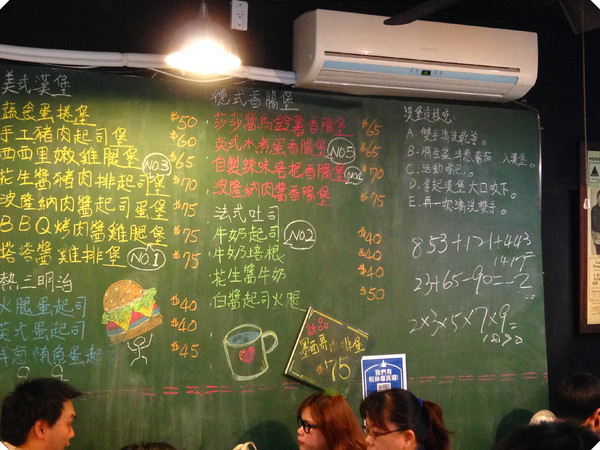 美式漢堡
蔬食蛋捲堡 $50
手工豬肉起司堡 $60
西西里嫩雞腿堡 NO3 $65
花生醬豬肉排起司堡 $70
波隆納肉醬起司蛋堡 $75
BBQ烤肉醬雞腿堡 $75
塔塔醬雞排堡 NO1 $75
熱三明治
火腿蛋起司 $40
英式蛋起司 $40
洋蔥鮪魚蛋起 $45
德式香腸堡
莎莎醬馬鈴薯香腸堡 $65
英式水煮蛋香腸堡 NO5 $65
自製辣味培根香腸堡 NO4 $70
波隆納肉醬香腸堡 $75
法式吐司 NO2
牛奶起司 $40
牛奶培根 $40
花生醬牛奶 $40
白醬起司火腿 $50
新品
墨西哥肉排堡
$75
我們有
粉絲專頁喔!
漢堡這樣吃:
A. 雙手清洗乾淨。
B. 將生菜、洋蔥、番茄 入漢堡。
C. 活動嘴巴。
D. 拿起漢堡大口咬下。
E. 再一次清洗雙手。
853+121+443
1417
23+65-90=-2
2×3×5×7×9=
1890